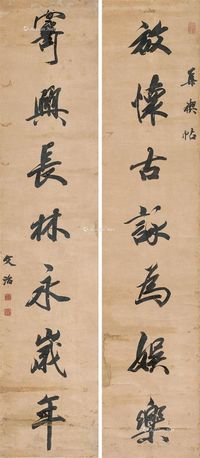 集禊帖
放懷古詠為娛樂
寄興長林永歲年
文治